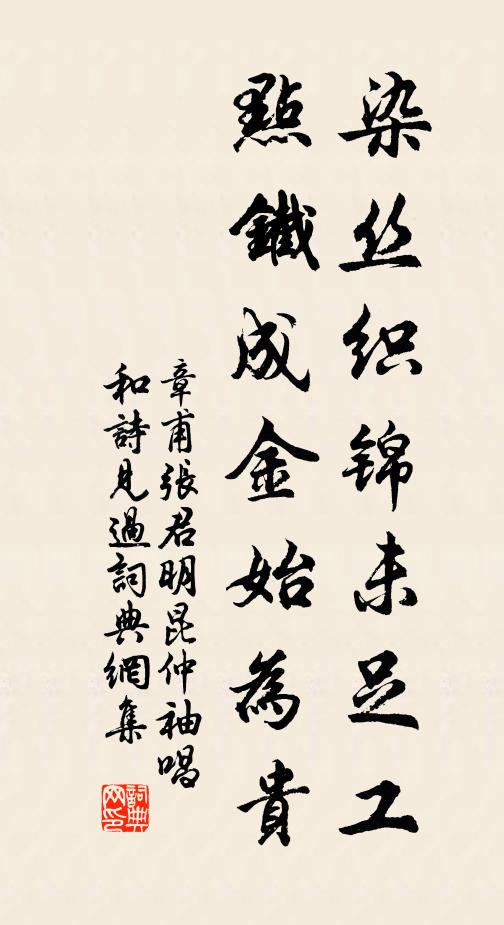 染丝织锦未足工
點鐵成金始為貴
章甫張君明昆仲袖唱
和詩見過詞典網集
詞典
网印